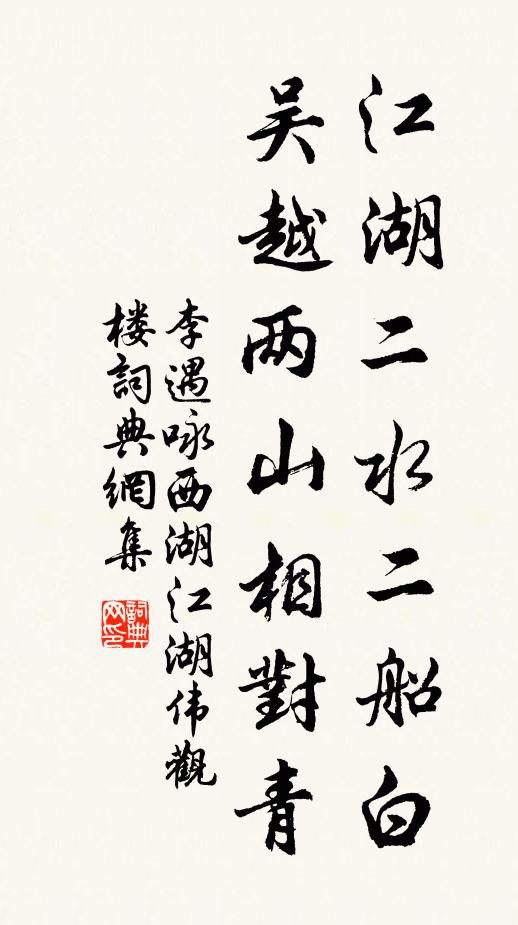 江湖二水二船白
吴越两山相對青
李遇咏西湖江湖伟觀
楼詞典網集
詞典网印